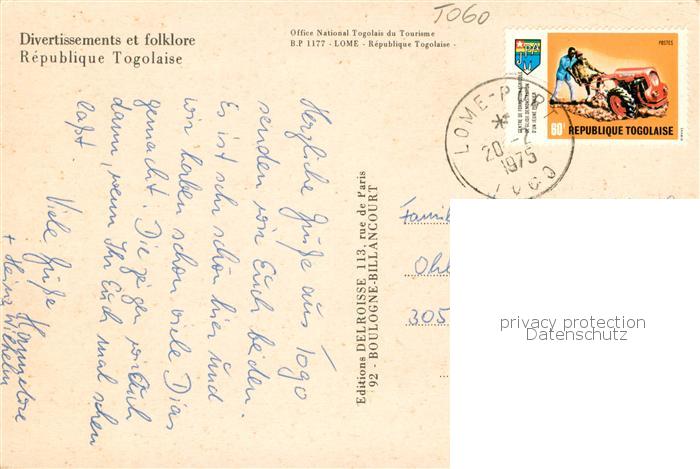 TOGO
Divertissements et folklore
République Togolaise
Office National Togolais du Tourisme
B.P 1177 - LOME - République Togolaise -
POSTES
60F REPUBLIQUE TOGOLAISE
LOME-R.P.
20-2
1975
TOGO
Herzliche Grüße aus Togo
senden wir Euch beiden.
Es ist sehr schön hier und
wir haben schon viele Dias
gemacht. Die zeigen wir Euch
dann, wenn Ihr Euch mal sehen
laßt.
Viele Grüße Hannelore
+ Heinz Wilhelm
Editions DELROISSE 113, rue de Paris
92 - BOULOGNE-BILLANCOURT
Famil
Ohl
305
privacy protection
Datenschutz